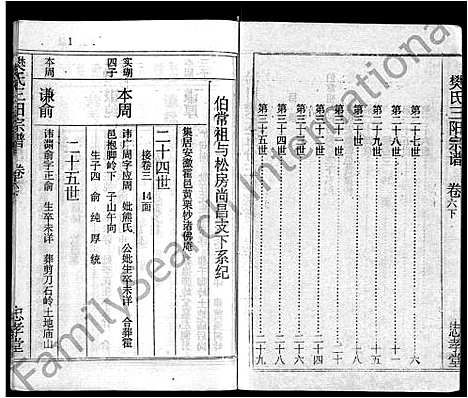 樊氏三阳宗谱 卷六下
忠孝堂
第二十七世 六
第二十八世
第二十九世
第三十世
第三十一世
第三十二世
第三十三世
第三十四世
第三十五世 二十九
伯常祖与松房尚昌支下系纪
集居安徽霍邑黄栗杪诸佛庵
二十四世
接卷三 14面
实瑚四子
本周
讳广周字应周 妣熊氏 公妣生卒未详 合葬霍
邑抱脚岭下 子山午向
生子四 俞 纯 厚 统
二十五世
本周
谦俞
讳谓俞字正俞 生卒未详 葬剪刀石岭土地庙山
樊氏三阳宗谱
忠孝堂
1
FamilySearch International